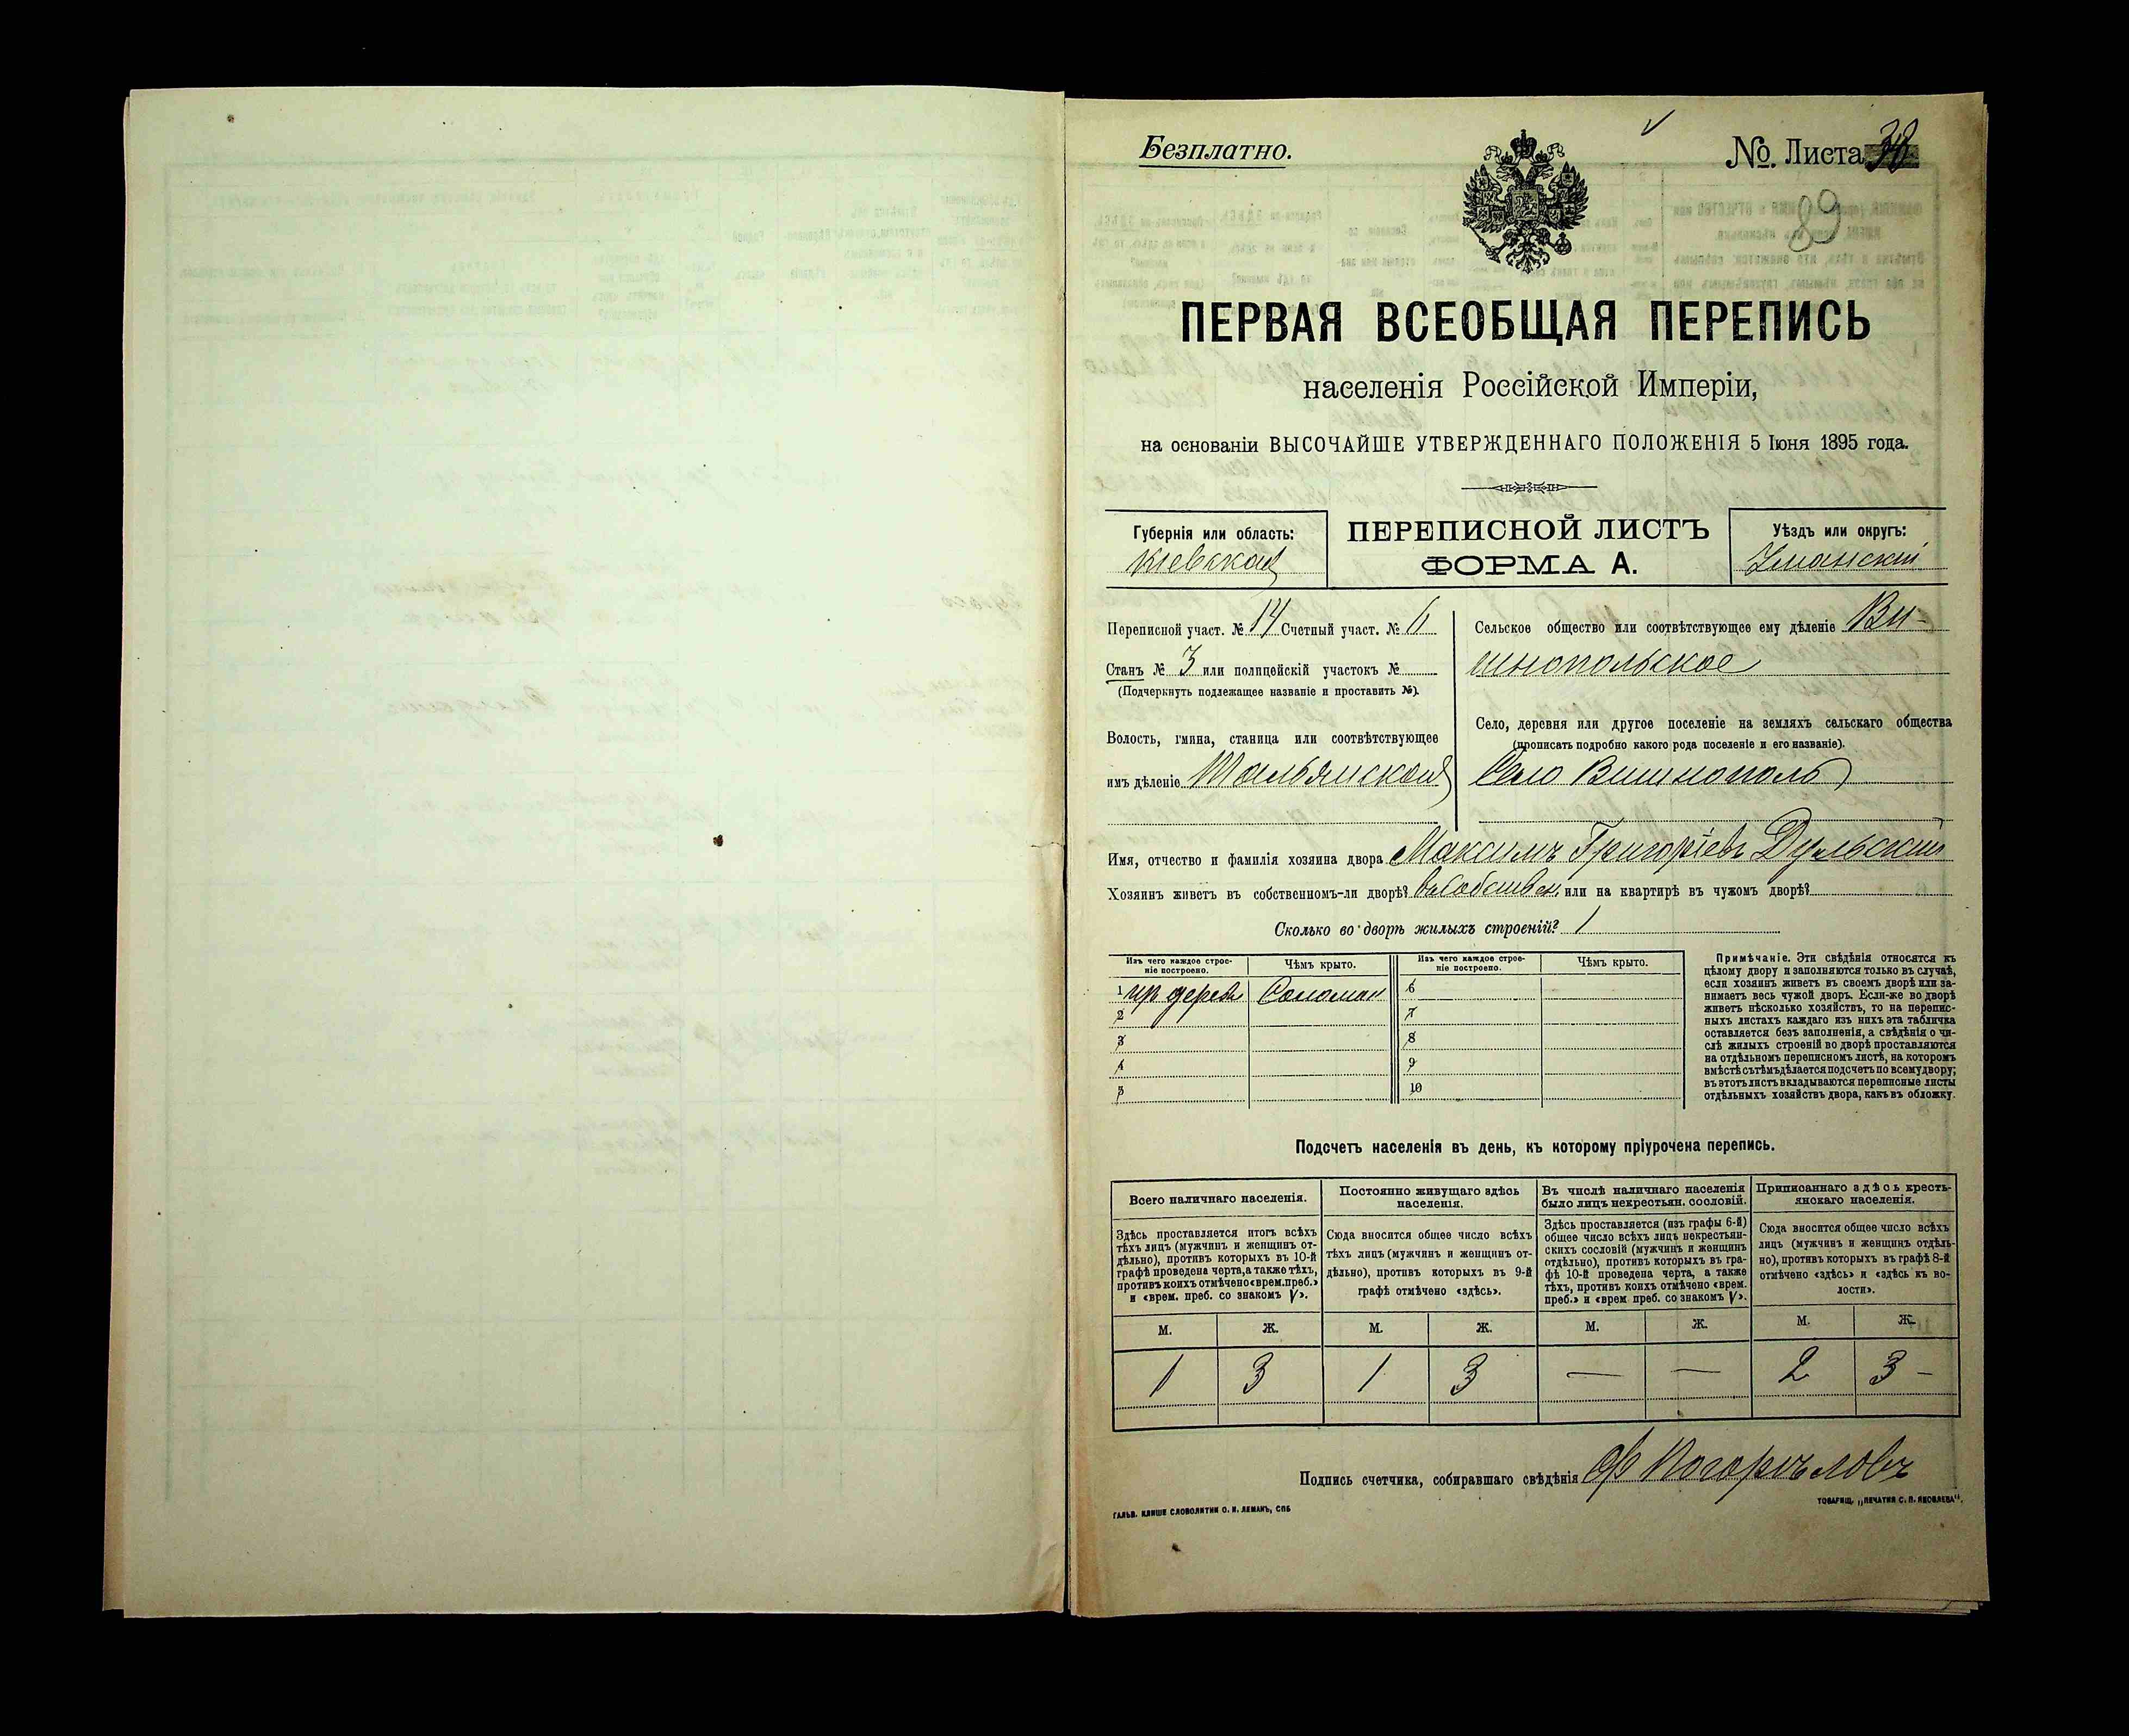 Безплатно.
№ Листа 38
89
ПЕРВАЯ ВСЕОБЩАЯ ПЕРЕПИСЬ
населенія Россійской Имперіи,
на основаніи ВЫСОЧАЙШЕ УТВЕРЖДЕННАГО ПОЛОЖЕНІЯ 5 Іюня 1895 года.
Губернія или область:
Кіевская
ПЕРЕПИСНОЙ ЛИСТЪ
ФОРМА А.
Уѣздъ или округъ:
Уманскій
Переписной участ. № 14 Счетный участ. № 6
Станъ № 3 или полицейскій участокъ №
(Подчеркнуть подлежащее названіе и проставить №).
Волость, гмина, станица или соотвѣтствующее
имъ дѣленіе Тальянская
Сельское общество или соотвѣтствующее ему дѣленіе Ви-
шнопольское
Село, деревня или другое поселеніе на земляхъ сельскаго общества
(прописать подробно какого рода поселеніе и его названіе).
Село Вишнополь
Имя, отчество и фамилія хозяина двора Максимъ Григоріевъ Дульскій
Хозяинъ живетъ въ собственномъ-ли дворѣ? въ собствен. или на квартирѣ въ чужомъ дворѣ?
Сколько во дворѣ жилыхъ строеній? 1
Изъ чего каждое строе-
ніе построено.
Чѣмъ крыто.
Изъ чего каждое строе-
ніе построено.
Чѣмъ крыто.
1 дерев Соломой 6
2 7
3 8
4 9
5 10
Примѣчаніе. Эти свѣдѣнія относятся къ
цѣлому двору и заполняются только въ случаѣ,
если хозяинъ живетъ въ своемъ дворѣ или за-
нимаетъ весь чужой дворъ. Если-же во дворѣ
живетъ нѣсколько хозяйствъ, то на перепис-
ныхъ листахъ каждаго изъ нихъ эта табличка
оставляется безъ заполненія, а свѣдѣнія о чи-
слѣ жилыхъ строеній во дворѣ проставляются
на отдѣльномъ переписномъ листѣ, на которомъ
вмѣстѣ съ тѣмъ дѣлается подсчетъ по всему двору;
въ этотъ листъ вкладываются переписные листы
отдѣльныхъ хозяйствъ двора, какъ въ обложку.
Подсчетъ населенія въ день, къ которому пріурочена перепись.
Всего наличнаго населенія.
Здѣсь проставляется итогъ всѣхъ
тѣхъ лицъ (мужчинъ и женщинъ от-
дѣльно), противъ которыхъ въ 10-й
графѣ проведена черта, а также тѣхъ,
противъ коихъ отмѣчено «врем. преб.»
и «врем. преб. со знакомъ V».
Постоянно живущаго здѣсь
населенія.
Сюда вносится общее число всѣхъ
тѣхъ лицъ (мужчинъ и женщинъ от-
дѣльно), противъ которыхъ въ 9-й
графѣ отмѣчено «здѣсь».
Въ числѣ наличнаго населенія
было лицъ некрестьян. сословій.
Здѣсь проставляется (изъ графы 6-й)
общее число всѣхъ лицъ некрестьян-
скихъ сословій (мужчинъ и женщинъ
отдѣльно), противъ которыхъ въ гра-
фѣ 10-й проведена черта, а также
тѣхъ, противъ коихъ отмѣчено «врем.
преб.» и «врем преб. со знакомъ V».
Приписаннаго здѣсь кресть-
янскаго населенія.
Сюда вносится общее число всѣхъ
лицъ (мужчинъ и женщинъ отдѣль-
но), противъ которыхъ въ графѣ 8-й
отмѣчено «здѣсь» и «здѣсь къ во-
лости».
М. Ж. М. Ж. М. Ж. М. Ж.
1 3 1 3 — — 2 3 -
Подпись счетчика, собиравшаго свѣдѣнія Погорѣловъ
ГАЛЬВ. КЛИШЕ СЛОВОЛИТНИ О. И. ЛЕМАНЪ, СПБ
ТОВАРИЩ. „ПЕЧАТНЯ С. П. ЯКОВЛЕВА“.